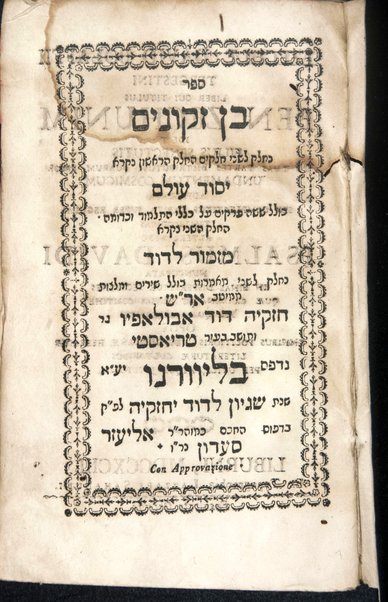 ספר
בן זקונים
נחלק לשני חלקים החלק הראשון נקרא
יסוד עולם
כולל ששה פרקים על כללי התלמוד וכדומה ·
החלק השני נקרא
מזמור לדוד
נחלק לשני מאמרות כולל שירים ומלצות
ממיטב אר״ש ·
חזקיה דוד אבולאפיו נר״ו
תושב בעיר טריאסטי
נדפס בליוורנו יע״א
שנת שגיון לדוד יחזקיה לפ״ק
בדפוס החכם כמוהר״ר אליעזר
סעדון נר״ו ·
Con Approvazione